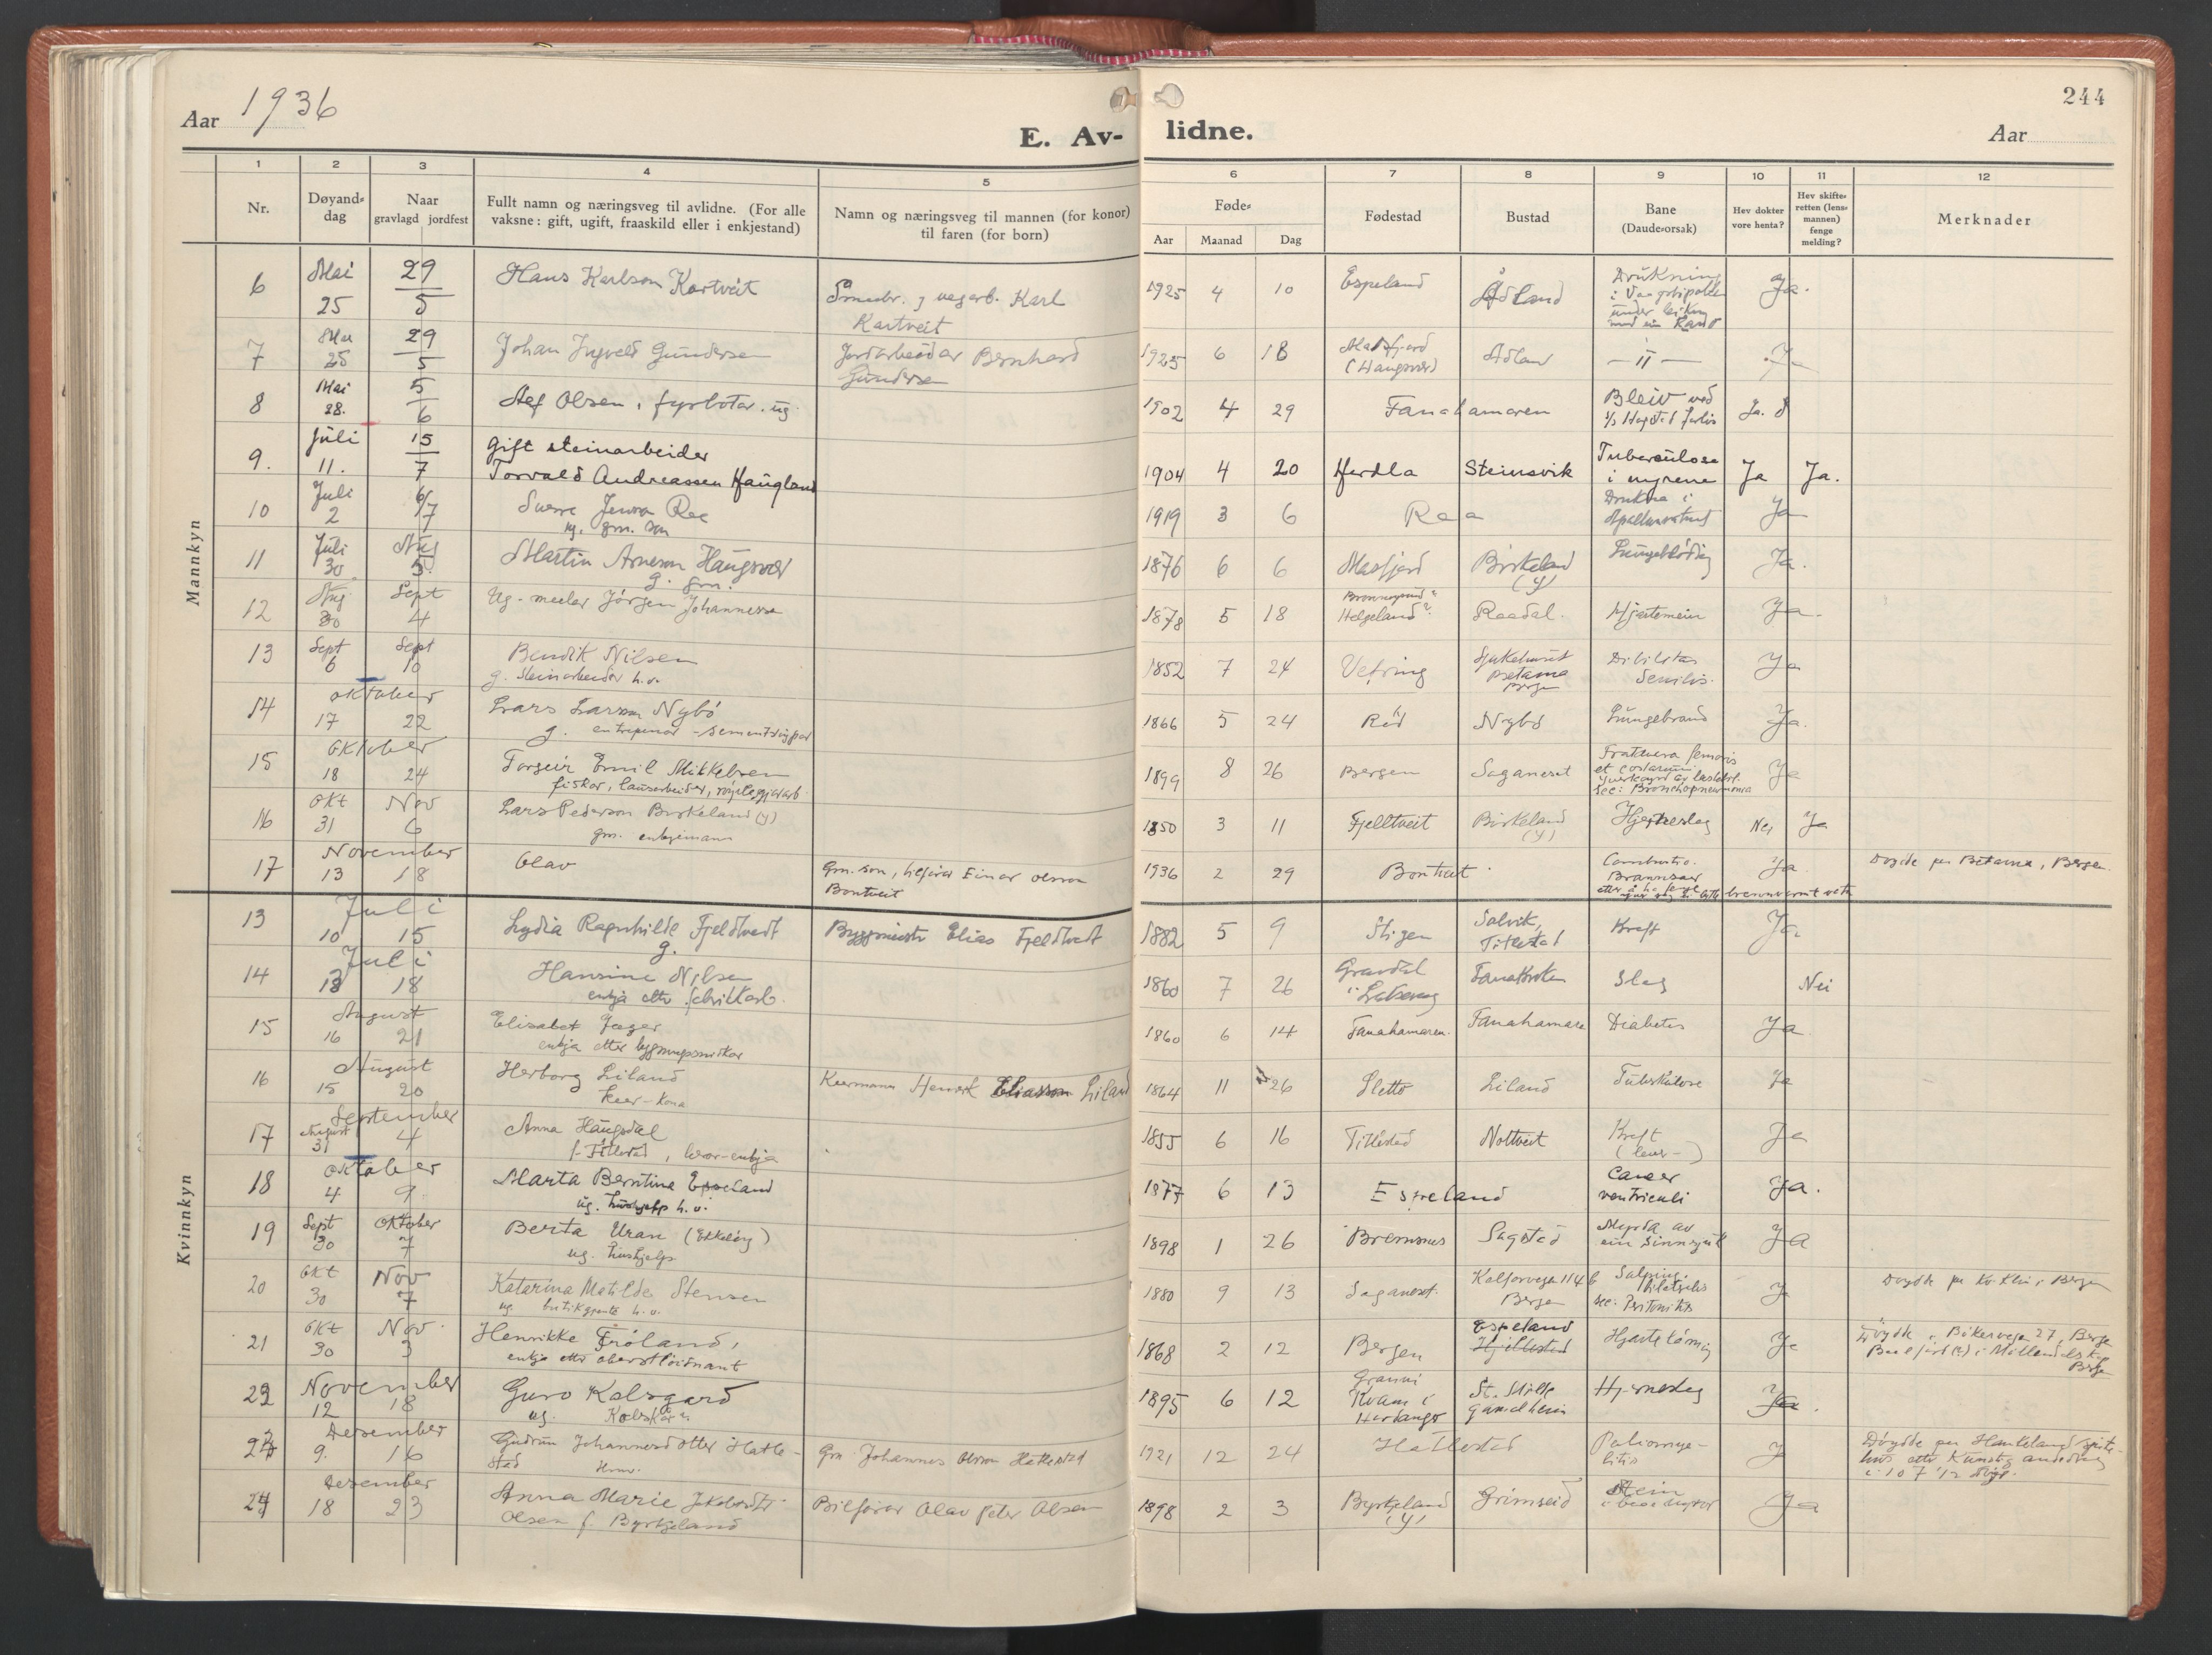 Aar 1936
E. Av-
lidne.
Aar
244
1 2 3 4 5
6 7 8 9 10 11 12
Nr.
Døyand-
dag
Naar
gravlagd jordfest
Fullt namn og næringsveg til avlidne. (For alle
vaksne: gift, ugift, fraaskild eller i enkjestand)
Namn og næringsveg til mannen (for konor)
til faren (for born)
Føde-
Aar Maanad Dag
Fødestad
Bustad
Bane
(Daude-orsak)
Hev dokter
vore henta?
Hev skifte-
retten (lens-
mannen)
fenge
melding?
Merknader
Mannkyn
6 Mai 25 29/5 Hans Karlson Kartveit
Småbr. og vegarb. Karl
Kartveit
1925 4 10 Espeland Ådland Drukning Ja.
7 Mai 25 29/5 Johan Ingvald Gundersen
Jordarbeidar Bernhard
Gundersen
1925 6 18 Masfjord
(Haugsvær)
Ådland — 〃 — Ja
8 Mai 28. 5/6 Alf Olsen, fyrbøtar. ug.
1902 4 29 Fanahamaren Bleiv ved Ja.
9. Juli 11. 15/7 gift steinarbeider
Torvald Andreassen Haugland
1904 4 20 Herdla Steinsvik Tuberculose
i nyrene
Ja Ja.
10 Juli 2 6/7 Sverre Jenson Raa
ug. grm. son
1919 3 6 Raa Drukna i Ja
11 Juli 30 Aug 5. Martin Arneson Haugsvær
g. grm.
1876 6 6 Masfjord Birkeland
(y)
Lungebløding Ja.
12 Aug 30 Sept 4 Ug. meelar Jörgen Johannessen
1878 5 18 Brønnøysund?
Helgeland?
Raadal. Hjartemein Ja.
13 Sept 6 Sept 10 Bendik Nilsen
g. Steinarbeider h.v.
1852 7 24 Vefring Sjukehuset
Betania
Bergen
Debilitas
Senilis.
Ja
14 oktober 17 22 Lars Larson Nybö
g. entreprenør - sementstøypar
1866 5 24 Röd Nybö Lungebrand Ja.
15 Oktober 18 24 Torgeir Emil Mikkelsen
fiskar, lausarbeider,
1899 8 26 Bergen Saganeset Fractura femoris
et costarum.
sec: Bronchopneumonia
Ja
16 Okt 31 Nov 6 Lars Pederson Birkeland (y)
grm. enkjemann
1850 3 11 Fjelltveit Birkeland
(y)
Hjerteslag Nei Ja
17 November 13 18 Olav
Grm. son, bilförar Einar Olsson
Bontveit
1936 2 29 Bontveit Combustio.
Brannsaar
Ja. Døydde paa Betania, Bergen.
Kvinnkyn
13 Juli 10 15 Lydia Ragnhilde Fjeldtvedt
g.
Byggmeistr Elias Fjeldtvedt
1882 5 9 Stigen Salvik,
Titlestad
Kreft Ja
14 Juli 13 18 Hansine Nilsen
enkja etter fabrikkarb.
1860 7 26 Gravdal
i Laksevaag
Fanabroten Slag Nei
15 August 16 21 Elisabet Jæger
enkja etter bygningsmeistar
1860 6 14 Fanahamaren. Fanahamare Diabetes Ja
16 August 15 20 Herborg Liland
keer-kona
Keermann Henrik Eliasson Liland
1864 11 26 Sletto Liland Tuberkulose Ja
17 August 31 September 4 Anna Haugsdal
f. Titlestad, keer-enkja
1855 6 16 Titlestad Nottveit Kreft
(lever-)
Ja
18 oktober 4 9. Marta Berntine Espeland
ug. hushjelp h.v.
1877 6 13 Espeland Cancer
ventriculi
Ja.
19 Sept 30 Oktober 7 Berta Uran (Ekkelöy)
ug. hushjelp
1898 1 26 Bremsnes Sagstad Myrda av
ein sinnssjuk
Ja
20 Okt 30 Nov 7 Katarina Matilde Stensen
ug. butikgjenta h.v.
1880 9 13 Saganeset. Kalfarvegen 114 b
Bergen
Salping.
bilateralis
sec. Peritonitis
Ja Døydde paa Kv. klin. i Bergen
21 Okt 30 Nov. 3 Henrikke Fröland,
enkja etter oberstlöitnant
1868 2 12 Bergen Espeland
Hjellestad
Hjartelaming Ja Døydde i Bökervegen 27, Bergen
22 November 12 18 Guro Kalsgard
ug.
1895 6 12 Granvin
Kvam i
Hardanger
St. Milde
gamleheim
Hjerneslag Ja.
23 Desember 9. 16 Gudrun Johannesdotter Hatle-
stad
Grm Johannes Olsson Hatlestad
1921 12 24 Hatlestad Poliomye-
litis
Ja Døydde paa Haukeland sjuke-
hus etter kunstig andedrag
24 Desember 18 23 Anna Marie Jakobsdtr.
Olsen f. Byrkjeland
Bilförar Olav Peter Olsen
1898 2 3 Byrkjeland
(y)
Grimseid Stein Ja